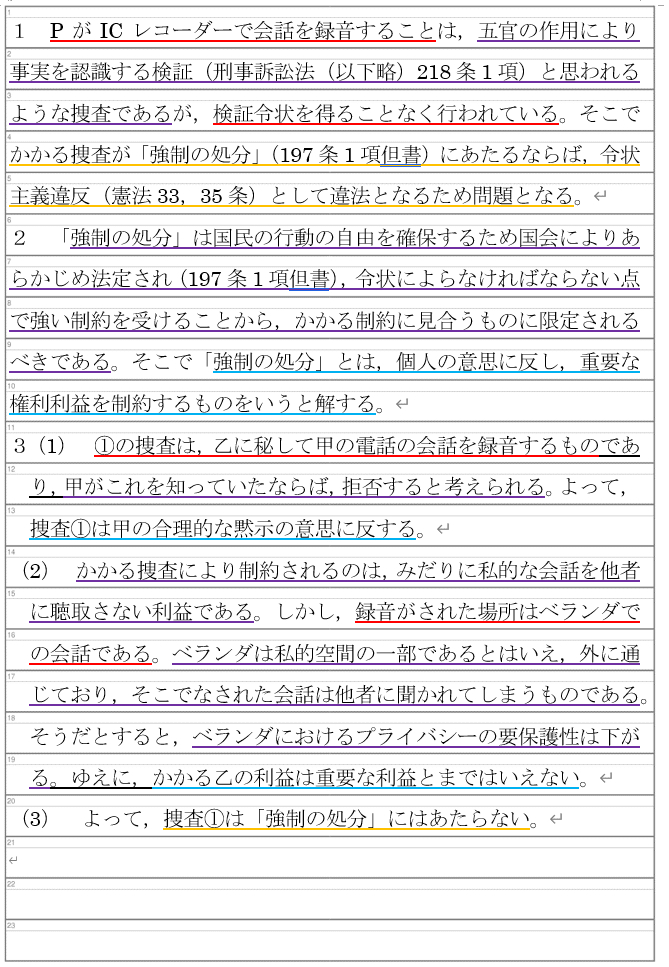 1
１　P が IC レコーダーで会話を録音することは，五官の作用により
2
事実を認識する検証（刑事訴訟法（以下略）218 条１項）と思われる
3
ような捜査であるが，検証令状を得ることなく行われている。そこで
4
かかる捜査が「強制の処分」（197 条１項但書）にあたるならば，令状
5
主義違反（憲法 33，35 条）として違法となるため問題となる。↵
6
２　「強制の処分」は国民の行動の自由を確保するため国会によりあ
7
らかじめ法定され（197 条１項但書），令状によらなければならない点
8
で強い制約を受けることから，かかる制約に見合うものに限定される
9
べきである。そこで「強制の処分」とは，個人の意思に反し，重要な
10
権利利益を制約するものをいうと解する。↵
11
３（1）　①の捜査は，乙に秘して甲の電話の会話を録音するものであ
12
り，甲がこれを知っていたならば，拒否すると考えられる。よって，
13
捜査①は甲の合理的な黙示の意思に反する。↵
14
（2）　かかる捜査により制約されるのは，みだりに私的な会話を他者
15
に聴取さない利益である。しかし，録音がされた場所はベランダで
16
の会話である。ベランダは私的空間の一部であるとはいえ，外に通
17
じており，そこでなされた会話は他者に聞かれてしまうものである。
18
そうだとすると，ベランダにおけるプライバシーの要保護性は下が
19
る。ゆえに，かかる乙の利益は重要な利益とまではいえない。↵
20
（3）　よって，捜査①は「強制の処分」にはあたらない。↵
21
↵
22
23